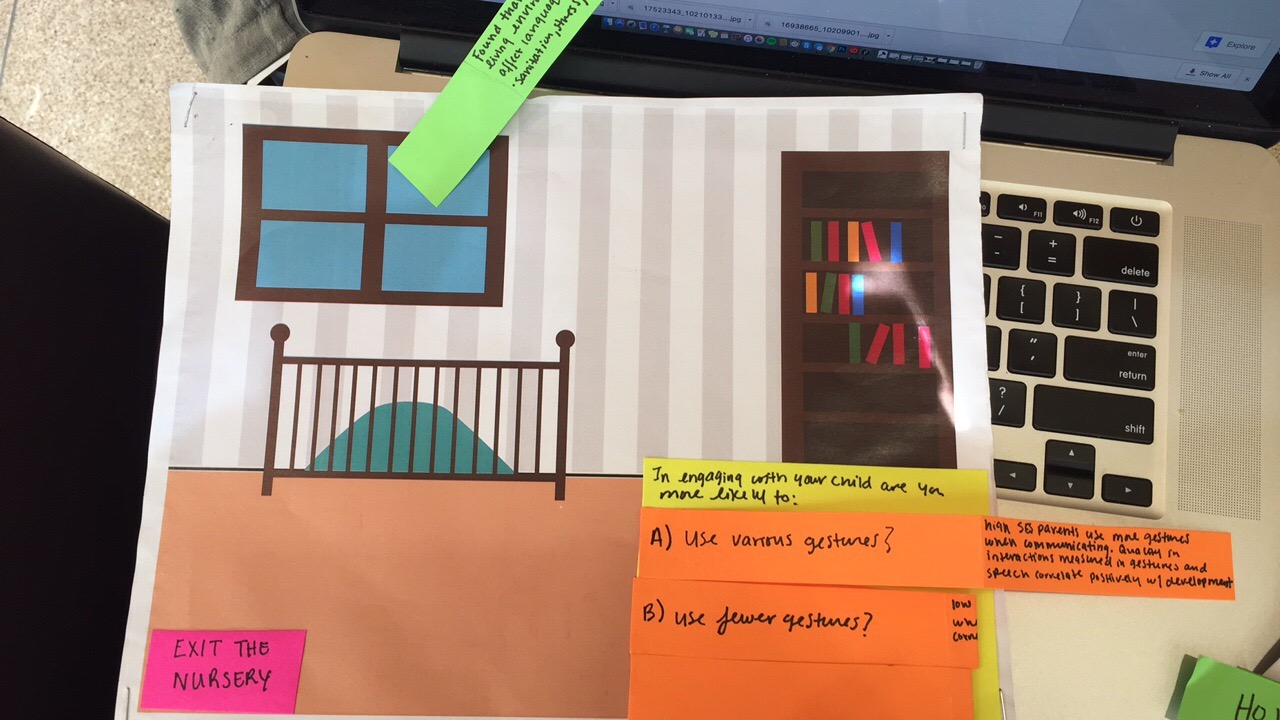 17523343_10210133....jpg
16938665_10209901....jpg
Explore
Show All
Found tha
living envir
affect languag
F11
F12
delete
enter
return
shift
In engaging with your child are you
more likely to:
A) Use various gestures?
high SES parents use more gestures
when communicating. Quality in
interactions measured in gestures and
speech correlate positively w/ development
B) Use fewer gestures?
low
EXIT THE
NURSERY
Ho